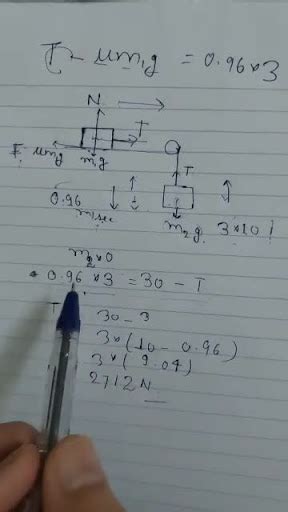 T - μm₁g = 0.96×3
N
T
μm₁g
m₁g
T
0.96
m₂g 3×10
m₂a
0.96 ×3 = 30 - T
T
30 - 3
3×(10 - 0.96)
3×(9.04)
2712 N